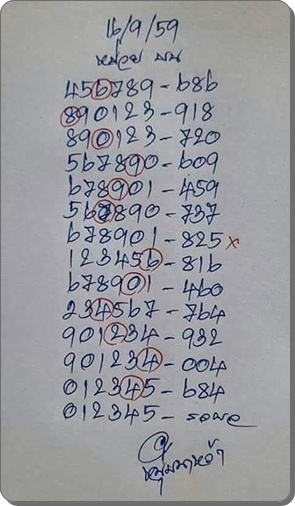 16/9/59
หน่อย พบ
456789-686
890123-918
890123-720
567890-609
678901-459
567890-737
678901-825 x
123456-816
678901-460
234567-764
901234-932
901234-004
012345-684
012345-รอผล